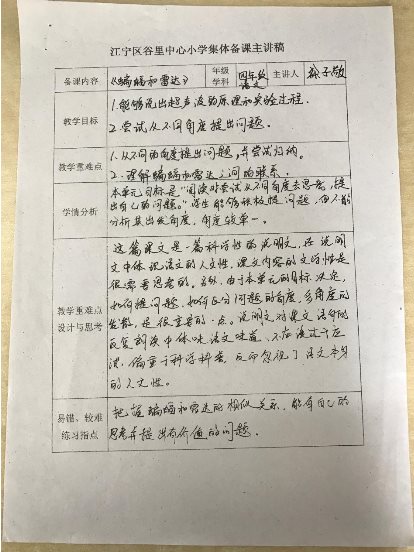 江宁区谷里中心小学集体备课主讲稿
备课内容 《蝙蝠和雷达》 年级学科 四年级语文 主讲人 孙子敬
教学目标
1.能够说出超声波的原理和实验过程.
2.尝试从不同角度提出问题.
教学重难点
1.从不同的角度提出问题,并尝试归纳.
2.理解蝙蝠和雷达之间的联系.
学情分析
本单元目标是“阅读时尝试从不同角度去思考,提
出自己的问题。”学生能够积极提问题,但不能
分析其出发角度,角度较单一。
教学重难点
设计与思考
这篇课文是一篇科学性的说明文,在说明
文中体现语文的人文性,课文内容的文学性是
很需要思考的。另外,由于本单元的目标决定,
如何提问题,如何区分问题的角度,多角度的
发散,是很重要的一点。说明文对课文语句的
反复剖读中体味语文味道,不应该过于
偏重于科学科普,反而忽视了语文本身
的人文性。
易错、较难
练习指点
把握蝙蝠和雷达的相似关系,能有自己的
思考并提出有价值的问题.